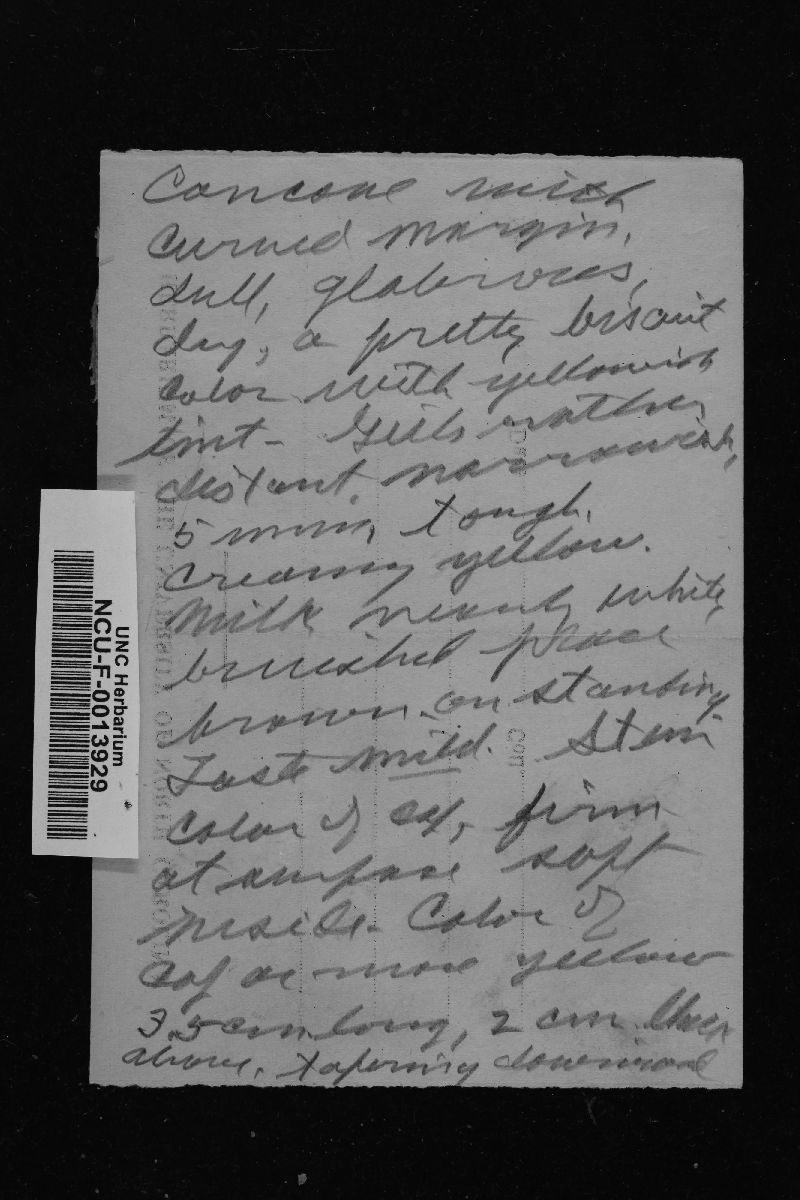 Concave with
curved margin,
dull, glabrous,
dry, a pretty biscuit
color with yellowish
tint - Gills rather
distant, narrowish,
5 mm, tough,
creamy yellow.
Milk nearly white,
bruised place
brown on standing
Taste mild. Stem
color of cap, firm
at surface soft
inside - Color of
cap or more yellow
3.5 cm long, 2 cm thick
above, tapering downward
UNC Herbarium
NCU-F-0013929